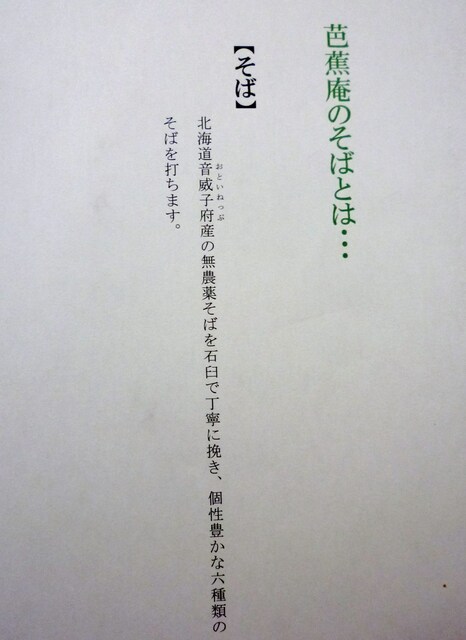 芭蕉庵のそばとは…
【そば】
北海道音威子府産の無農薬そばを石臼で丁寧に挽き、個性豊かな六種類の
おといねっぷ
そばを打ちます。